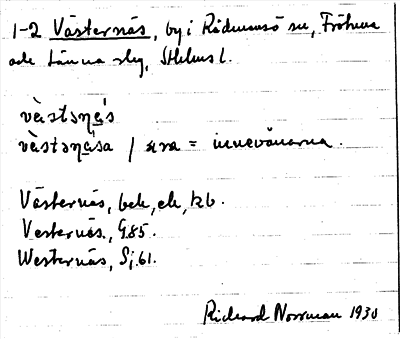 1-2 Västernäs, by i Rådmansö sn, Fröhuna
och Länna slg, Sthlms l.
västəṇä́s
västəṇä́sa / ara = innevånarna.
Västernäs, bek, ek, kb.
Vesternäs, G85.
Westernäs, Sj.61.
Rickard Norrman 1930